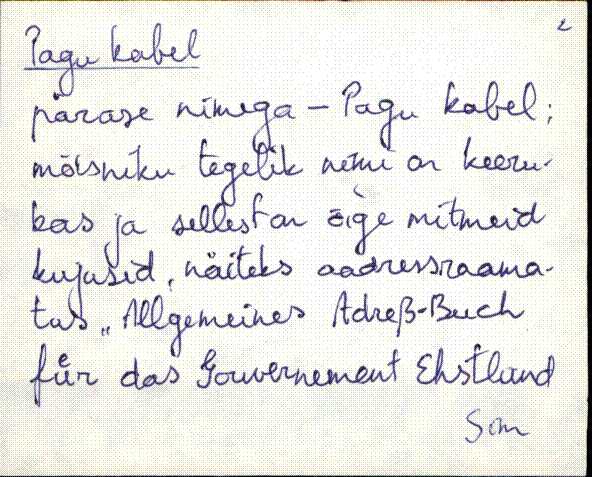 2
Pagu kabel
pärase nimega – Pagu kabel;
mõisniku tegelik nimi on keeru-
kas ja sellest on õige mitmeid
kujusid, näiteks aadressraama-
tus „Allgemeines Adreß-Buch
für das Gouvernement Ehstland